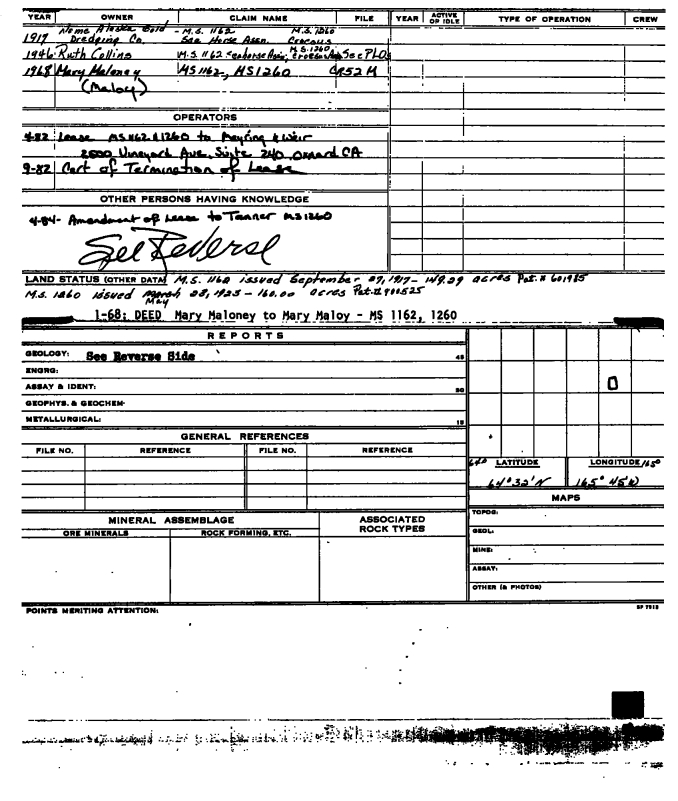 YEAR OWNER CLAIM NAME FILE YEAR ACTIVE OF IDLE TYPE OF OPERATION CREW
Nome Alaska Gold - M.S. 1162 M.S. 1260
1917 Dredging Co. Sea Horse Assn. Crocous
1946 Ruth Collins M.S. 1162 Seahorse Assn; M.S. 1260 See PLOs
1968 Mary Maloney MS 1162, MS 1260 CR52 M
(Maloy)
OPERATORS
4-82 Lease MS 1162 & 1260 to Meyring & Weir
2500 Vineyard Ave, Suite 240, Oxnard CA
9-82 Cert of Termination of Lease
OTHER PERSONS HAVING KNOWLEDGE
4-84- Amendment of Lease to Tanner MS 1260
See Reverse
LAND STATUS (OTHER DATA) M.S. 1162 issued September 27, 1917 - 149.29 acres Pat. # 601985
M.S. 1260 issued March 28, 1923 - 160.00 acres Pat. # 900525
May
1-68: DEED Mary Maloney to Mary Maloy - MS 1162, 1260
REPORTS
GEOLOGY: See Reverse Side 45
ENGRG:
ASSAY & IDENT: 30
GEOPHYS. & GEOCHEM-
METALLURGICAL: 15
GENERAL REFERENCES
FILE NO. REFERENCE FILE NO. REFERENCE
64° LATITUDE LONGITUDE 165°
64° 32' N 165° 45' W
MAPS
TOPOG:
GEOL:
MINE:
ASSAY:
OTHER (& PHOTOS)
MINERAL ASSEMBLAGE ASSOCIATED ROCK TYPES
ORE MINERALS ROCK FORMING, ETC.
POINTS MERITING ATTENTION: SP 7913